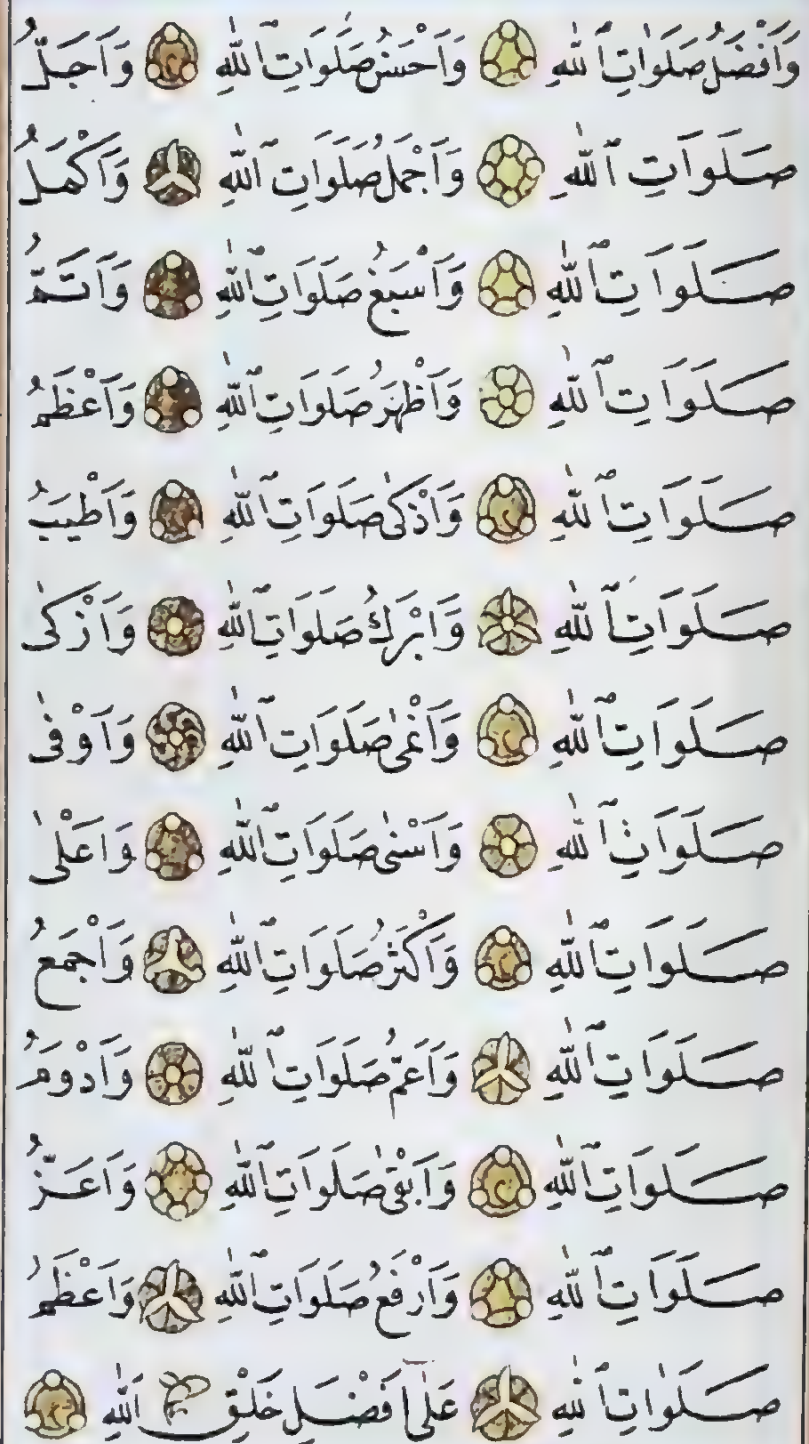 وَاَفْضَلُ صَلَوَاتِ ٱللّٰهِ وَاَحْسَنُ صَلَوَاتِ ٱللّٰهِ وَاَجَلُّ
صَلَوَاتِ ٱللّٰهِ وَاَجْمَلُ صَلَوَاتِ ٱللّٰهِ وَاَكْمَلُ
صَلَوَاتِ ٱللّٰهِ وَاَسْبَغُ صَلَوَاتِ ٱللّٰهِ وَاَتَمُّ
صَلَوَاتِ ٱللّٰهِ وَاَظْهَرُ صَلَوَاتِ ٱللّٰهِ وَاَعْظَمُ
صَلَوَاتِ ٱللّٰهِ وَاَذْكٰى صَلَوَاتِ ٱللّٰهِ وَاَطْيَبُ
صَلَوَاتِ ٱللّٰهِ وَاَبْرَكُ صَلَوَاتِ ٱللّٰهِ وَاَزْكٰى
صَلَوَاتِ ٱللّٰهِ وَاَنْمٰى صَلَوَاتِ ٱللّٰهِ وَاَوْفٰى
صَلَوَاتِ ٱللّٰهِ وَاَسْنٰى صَلَوَاتِ ٱللّٰهِ وَاَعْلٰى
صَلَوَاتِ ٱللّٰهِ وَاَكْثَرُ صَلَوَاتِ ٱللّٰهِ وَاَجْمَعُ
صَلَوَاتِ ٱللّٰهِ وَاَعَمُّ صَلَوَاتِ ٱللّٰهِ وَاَدْوَمُ
صَلَوَاتِ ٱللّٰهِ وَاَبْقٰى صَلَوَاتِ ٱللّٰهِ وَاَعَزُّ
صَلَوَاتِ ٱللّٰهِ وَاَرْفَعُ صَلَوَاتِ ٱللّٰهِ وَاَعْظَمُ
صَلَوَاتِ ٱللّٰهِ عَلٰٓى اَفْضَلِ خَلْقِ ٱللّٰهِ